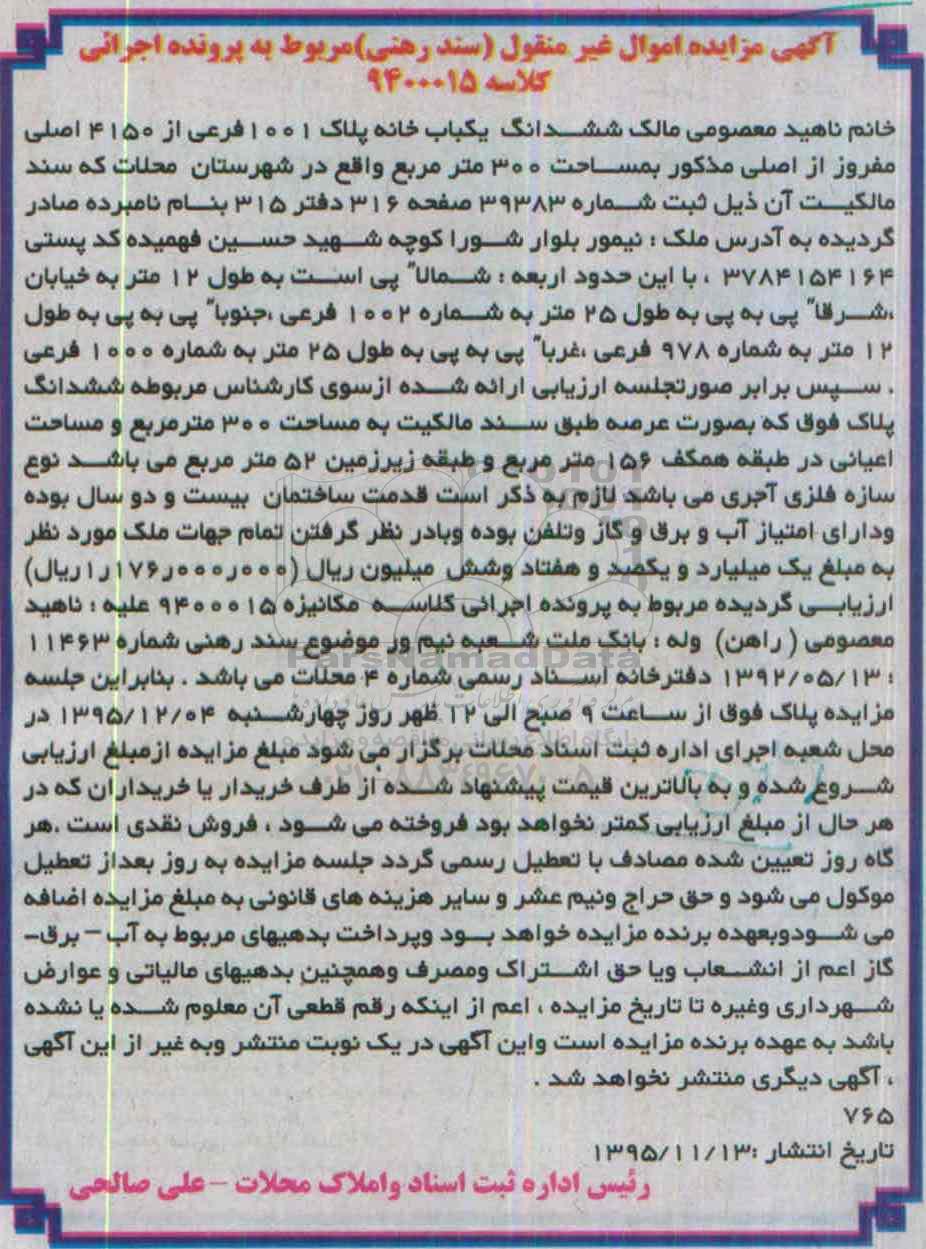 آگهی مزایده اموال غیر منقول (سند رهنی)مربوط به پرونده اجرائی
کلاسه ۹۴۰۰۰۱۵
خانم ناهید معصومی مالک ششدانگ یکباب خانه پلاک ۱۰۰۱فرعی از ۴۱۵۰ اصلی
مفروز از اصلی مذکور بمساحت ۳۰۰ متر مربع واقع در شهرستان محلات که سند
مالکیت آن ذیل ثبت شماره ۳۹۳۸۳ صفحه ۳۱۶ دفتر ۳۱۵ بنام نامبرده صادر
گردیده به آدرس ملک : نیمور بلوار شورا کوچه شهید حسین فهمیده کد پستی
۳۷۸۴۱۵۴۱۶۴ ، با این حدود اربعه : شمالا" پی است به طول ۱۲ متر به خیابان
،شرقا" پی به پی به طول ۲۵ متر به شماره ۱۰۰۲ فرعی ،جنوبا" پی به پی به طول
۱۲ متر به شماره ۹۷۸ فرعی ،غربا" پی به پی به طول ۲۵ متر به شماره ۱۰۰۰ فرعی
. سپس برابر صورتجلسه ارزیابی ارائه شده ازسوی کارشناس مربوطه ششدانگ
پلاک فوق که بصورت عرصه طبق سند مالکیت به مساحت ۳۰۰ مترمربع و مساحت
اعیانی در طبقه همکف ۱۵۶ متر مربع و طبقه زیرزمین ۵۲ متر مربع می باشد نوع
سازه فلزی آجری می باشد لازم به ذکر است قدمت ساختمان بیست و دو سال بوده
ودارای امتیاز آب و برق و گاز وتلفن بوده وبادر نظر گرفتن تمام جهات ملک مورد نظر
به مبلغ یک میلیارد و یکصد و هفتاد وشش میلیون ریال (۱٫۱۷۶٫۰۰۰٫۰۰۰ریال)
ارزیابی گردیده مربوط به پرونده اجرائی کلاسه مکانیزه ۹۴۰۰۰۱۵ علیه : ناهید
معصومی ( راهن) وله : بانک ملت شعبه نیم ور موضوع سند رهنی شماره ۱۱۴۶۳
؛ ۱۳۹۲/۰۵/۱۳ دفترخانه اسناد رسمی شماره ۴ محلات می باشد . بنابراین جلسه
مزایده پلاک فوق از ساعت ۹ صبح الی ۱۲ ظهر روز چهارشنبه ۱۳۹۵/۱۲/۰۴ در
محل شعبه اجرای اداره ثبت اسناد محلات برگزار می شود مبلغ مزایده ازمبلغ ارزیابی
شروع شده و به بالاترین قیمت پیشنهاد شده از طرف خریدار یا خریداران که در
هر حال از مبلغ ارزیابی کمتر نخواهد بود فروخته می شود ، فروش نقدی است .هر
گاه روز تعیین شده مصادف با تعطیل رسمی گردد جلسه مزایده به روز بعداز تعطیل
موکول می شود و حق حراج ونیم عشر و سایر هزینه های قانونی به مبلغ مزایده اضافه
می شودوبعهده برنده مزایده خواهد بود وپرداخت بدهیهای مربوط به آب – برق-
گاز اعم از انشعاب ویا حق اشتراک ومصرف وهمچنین بدهیهای مالیاتی و عوارض
شهرداری وغیره تا تاریخ مزایده ، اعم از اینکه رقم قطعی آن معلوم شده یا نشده
باشد به عهده برنده مزایده است واین آگهی در یک نوبت منتشر وبه غیر از این آگهی
، آگهی دیگری منتشر نخواهد شد .
۷۶۵
تاریخ انتشار :۱۳۹۵/۱۱/۱۳
رئیس اداره ثبت اسناد واملاک محلات - علی صالحی
ParsNamadData